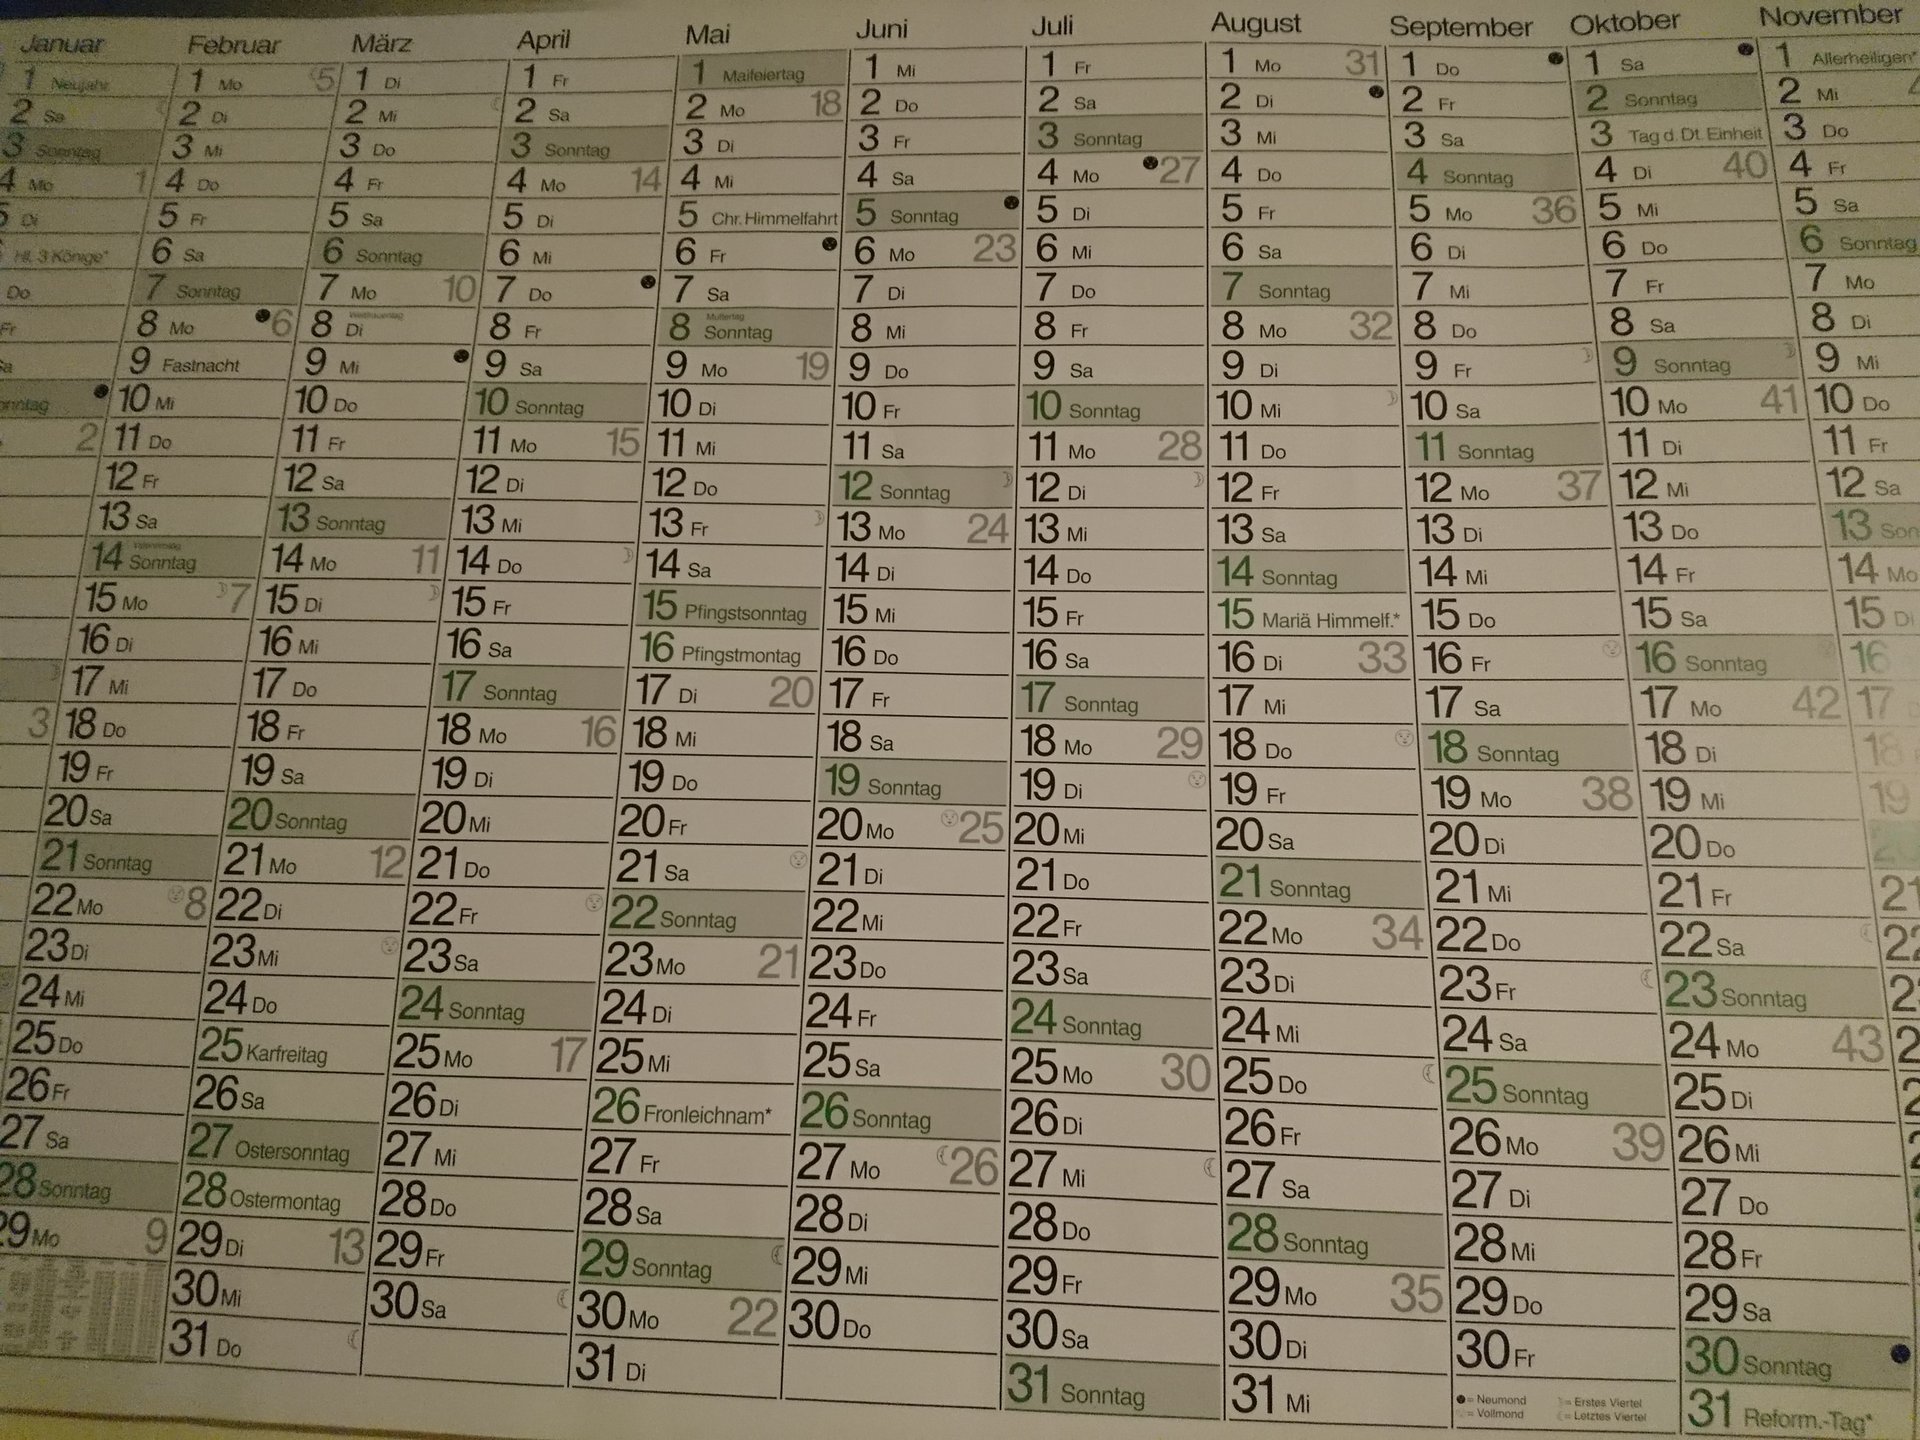 Januar
1 Neujahr
2 Sa
3 Sonntag
4 Mo 1
5 Di
Hl. 3 Könige*
Do
Fr
2
3
Februar
1 Mo 5
2 Di
3 Mi
4 Do
5 Fr
6 Sa
7 Sonntag
8 Mo 6
9 Fastnacht
10 Mi
11 Do
12 Fr
13 Sa
14 Sonntag
15 Mo 7
16 Di
17 Mi
18 Do
19 Fr
20 Sa
21 Sonntag
22 Mo 8
23 Di
24 Mi
25 Do
26 Fr
27 Sa
28 Sonntag
29 Mo 9
März
1 Di
2 Mi
3 Do
4 Fr
5 Sa
6 Sonntag
7 Mo 10
8 Di
9 Mi
10 Do
11 Fr
12 Sa
13 Sonntag
14 Mo 11
15 Di
16 Mi
17 Do
18 Fr
19 Sa
20 Sonntag
21 Mo 12
22 Di
23 Mi
24 Do
25 Karfreitag
26 Sa
27 Ostersonntag
28 Ostermontag
29 Di 13
30 Mi
31 Do
April
1 Fr
2 Sa
3 Sonntag
4 Mo 14
5 Di
6 Mi
7 Do
8 Fr
9 Sa
10 Sonntag
11 Mo 15
12 Di
13 Mi
14 Do
15 Fr
16 Sa
17 Sonntag
18 Mo 16
19 Di
20 Mi
21 Do
22 Fr
23 Sa
24 Sonntag
25 Mo 17
26 Di
27 Mi
28 Do
29 Fr
30 Sa
Mai
1 Maifeiertag
2 Mo 18
3 Di
4 Mi
5 Chr. Himmelfahrt
6 Fr
7 Sa
Muttertag
8 Sonntag
9 Mo 19
10 Di
11 Mi
12 Do
13 Fr
14 Sa
15 Pfingstsonntag
16 Pfingstmontag
17 Di 20
18 Mi
19 Do
20 Fr
21 Sa
22 Sonntag
23 Mo 21
24 Di
25 Mi
26 Fronleichnam*
27 Fr
28 Sa
29 Sonntag
30 Mo 22
31 Di
Juni
1 Mi
2 Do
3 Fr
4 Sa
5 Sonntag
6 Mo 23
7 Di
8 Mi
9 Do
10 Fr
11 Sa
12 Sonntag
13 Mo 24
14 Di
15 Mi
16 Do
17 Fr
18 Sa
19 Sonntag
20 Mo 25
21 Di
22 Mi
23 Do
24 Fr
25 Sa
26 Sonntag
27 Mo 26
28 Di
29 Mi
30 Do
Juli
1 Fr
2 Sa
3 Sonntag
4 Mo 27
5 Di
6 Mi
7 Do
8 Fr
9 Sa
10 Sonntag
11 Mo 28
12 Di
13 Mi
14 Do
15 Fr
16 Sa
17 Sonntag
18 Mo 29
19 Di
20 Mi
21 Do
22 Fr
23 Sa
24 Sonntag
25 Mo 30
26 Di
27 Mi
28 Do
29 Fr
30 Sa
31 Sonntag
August
1 Mo 31
2 Di
3 Mi
4 Do
5 Fr
6 Sa
7 Sonntag
8 Mo 32
9 Di
10 Mi
11 Do
12 Fr
13 Sa
14 Sonntag
15 Mariä Himmelf.*
16 Di 33
17 Mi
18 Do
19 Fr
20 Sa
21 Sonntag
22 Mo 34
23 Di
24 Mi
25 Do
26 Fr
27 Sa
28 Sonntag
29 Mo 35
30 Di
31 Mi
September
1 Do
2 Fr
3 Sa
4 Sonntag
5 Mo 36
6 Di
7 Mi
8 Do
9 Fr
10 Sa
11 Sonntag
12 Mo 37
13 Di
14 Mi
15 Do
16 Fr
17 Sa
18 Sonntag
19 Mo 38
20 Di
21 Mi
22 Do
23 Fr
24 Sa
25 Sonntag
26 Mo 39
27 Di
28 Mi
29 Do
30 Fr
= Neumond = Erstes Viertel
= Vollmond = Letztes Viertel
Oktober
1 Sa
2 Sonntag
3 Tag d. Dt. Einheit
4 Di 40
5 Mi
6 Do
7 Fr
8 Sa
9 Sonntag
10 Mo 41
11 Di
12 Mi
13 Do
14 Fr
15 Sa
16 Sonntag
17 Mo 42
18 Di
19 Mi
20 Do
21 Fr
22 Sa
23 Sonntag
24 Mo 43
25 Di
26 Mi
27 Do
28 Fr
29 Sa
30 Sonntag
31 Reform.-Tag*
November
1 Allerheiligen*
2 Mi
3 Do
4 Fr
5 Sa
6 Sonntag
7 Mo
8 Di
9 Mi
10 Do
11 Fr
12 Sa
13 Son
14 Mo
15 Di
16
17
18
19
20
21